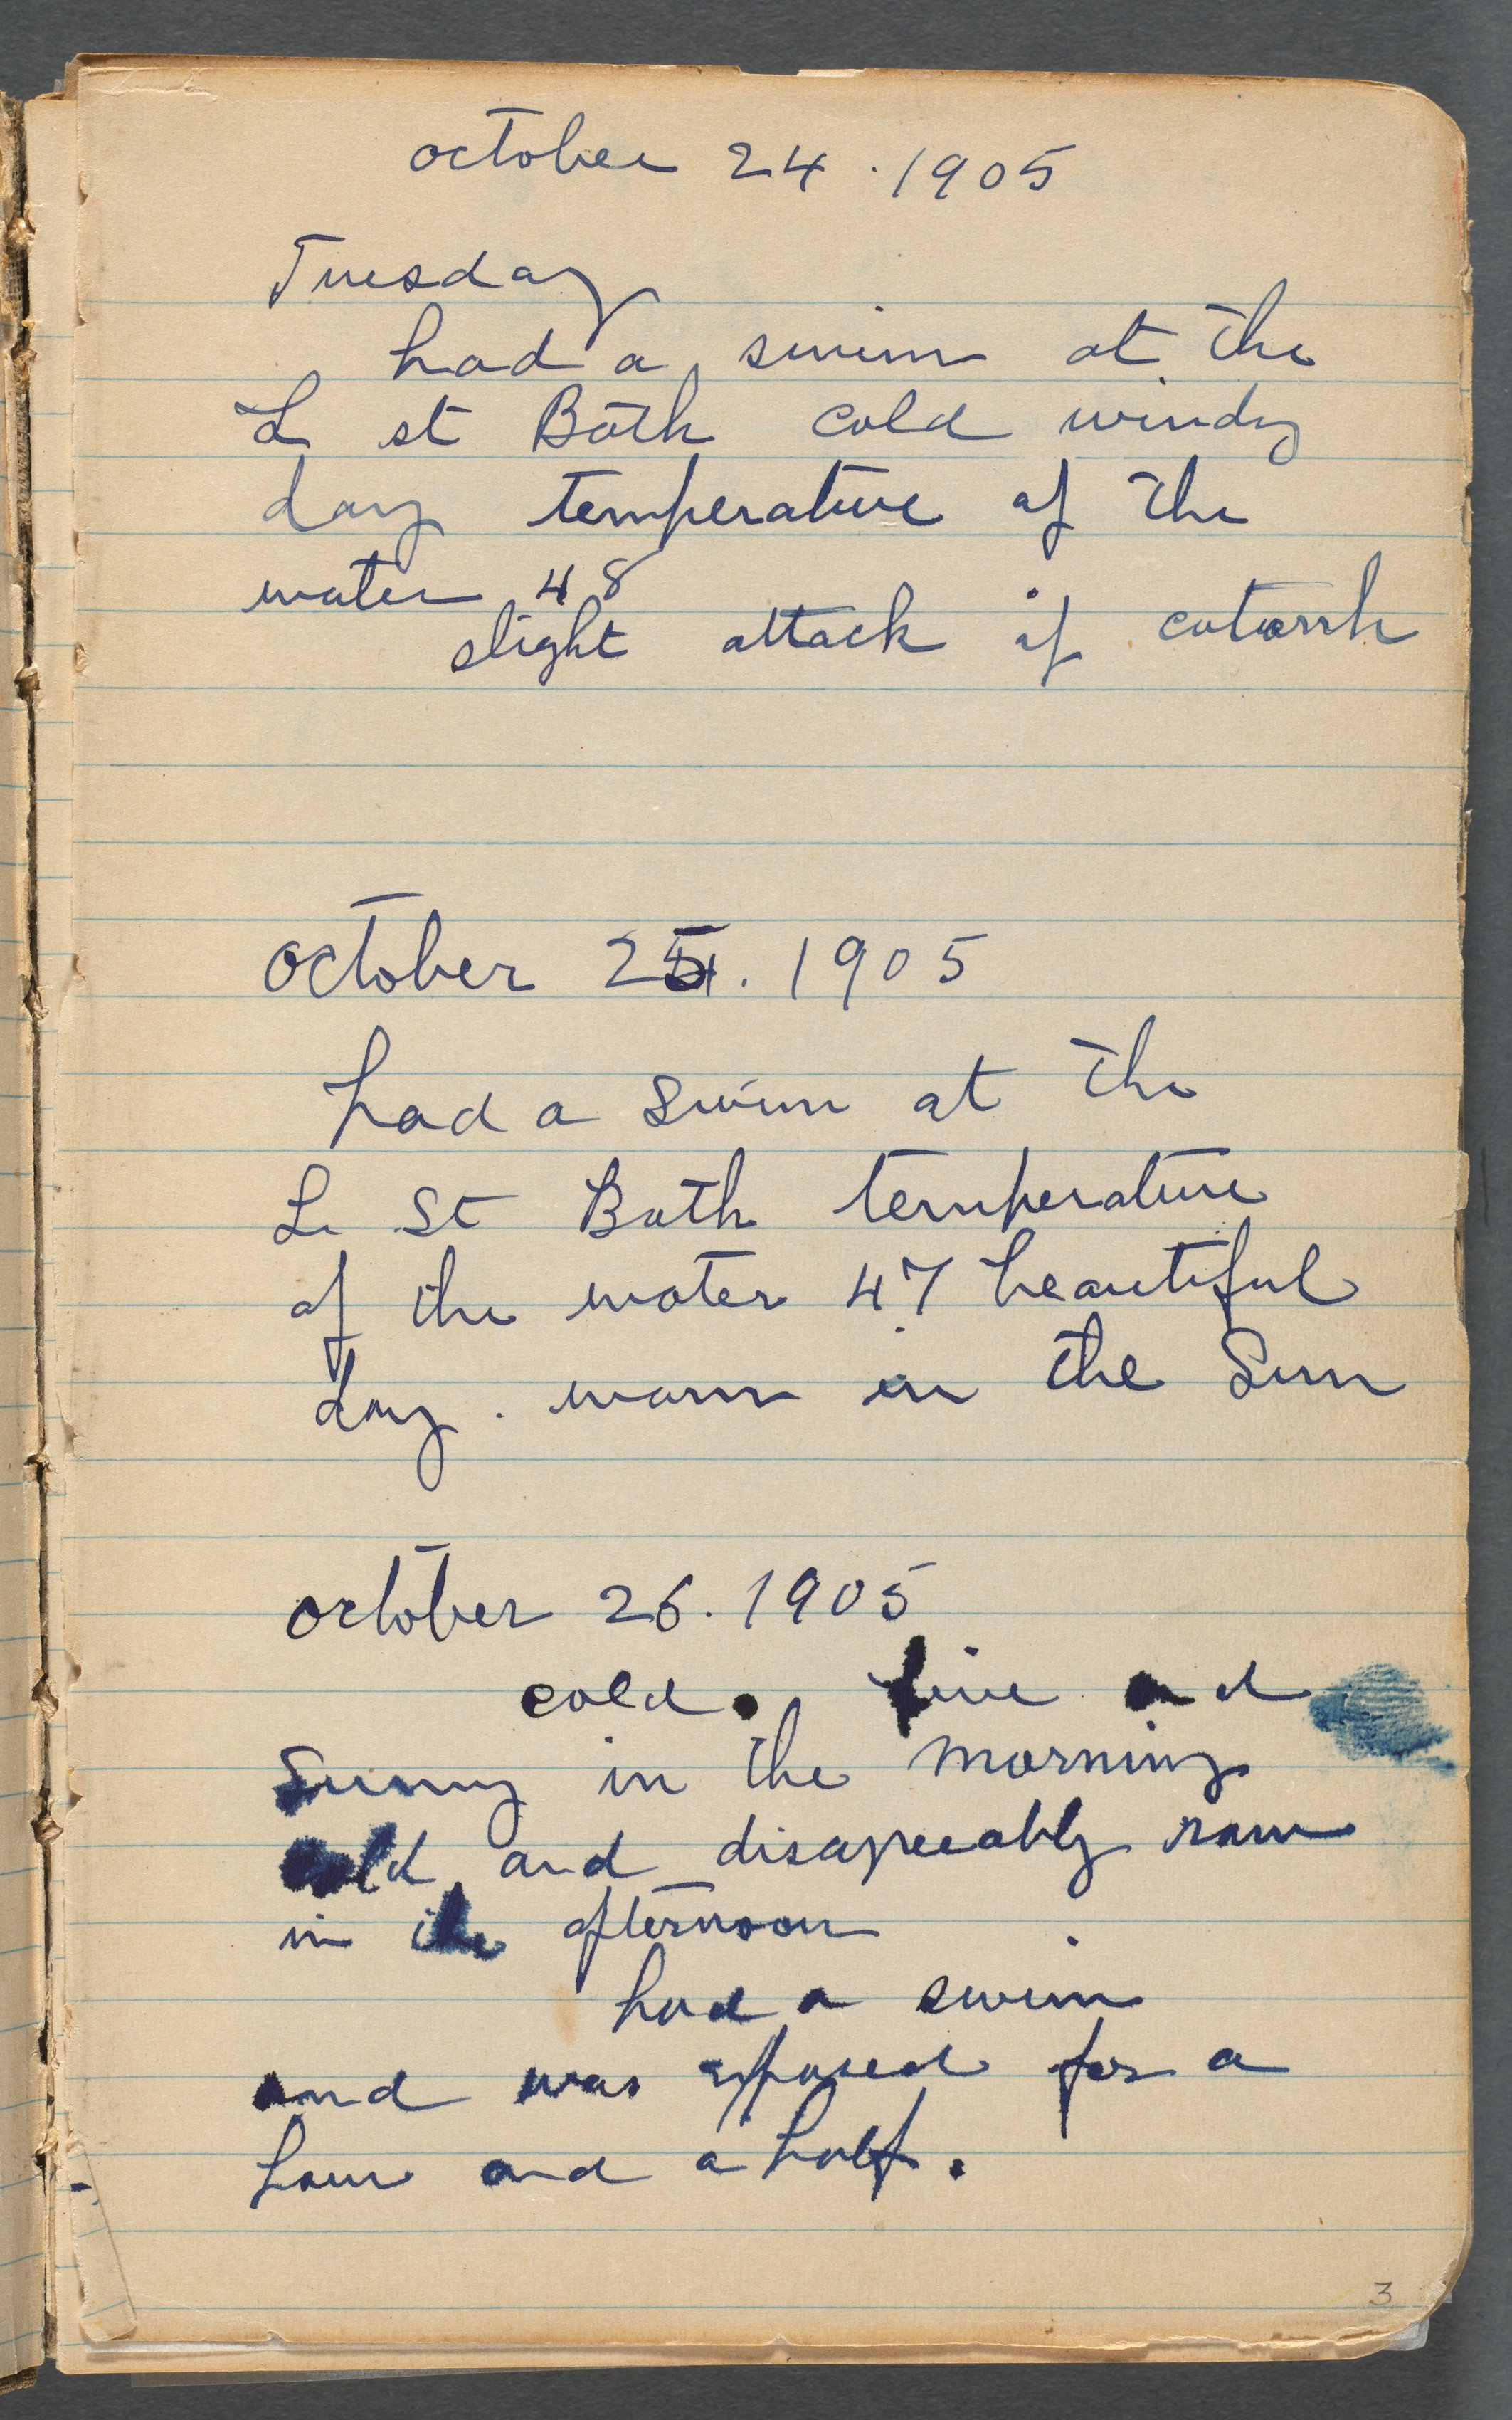 october 24 . 1905
Tuesday
had a swim at the
L st Bath cold windy
day temperature of the
water 48
slight attack of catarrh
october 25. 1905
had a swim at the
L St Bath temperature
of the water 47 beautiful
day . warm in the Sun
october 26. 1905
cold. fine and
Sunny in the morning
cold and disagreeably raw
in the afternoon
had a swim
and was exposed for a
hour and a half.
3